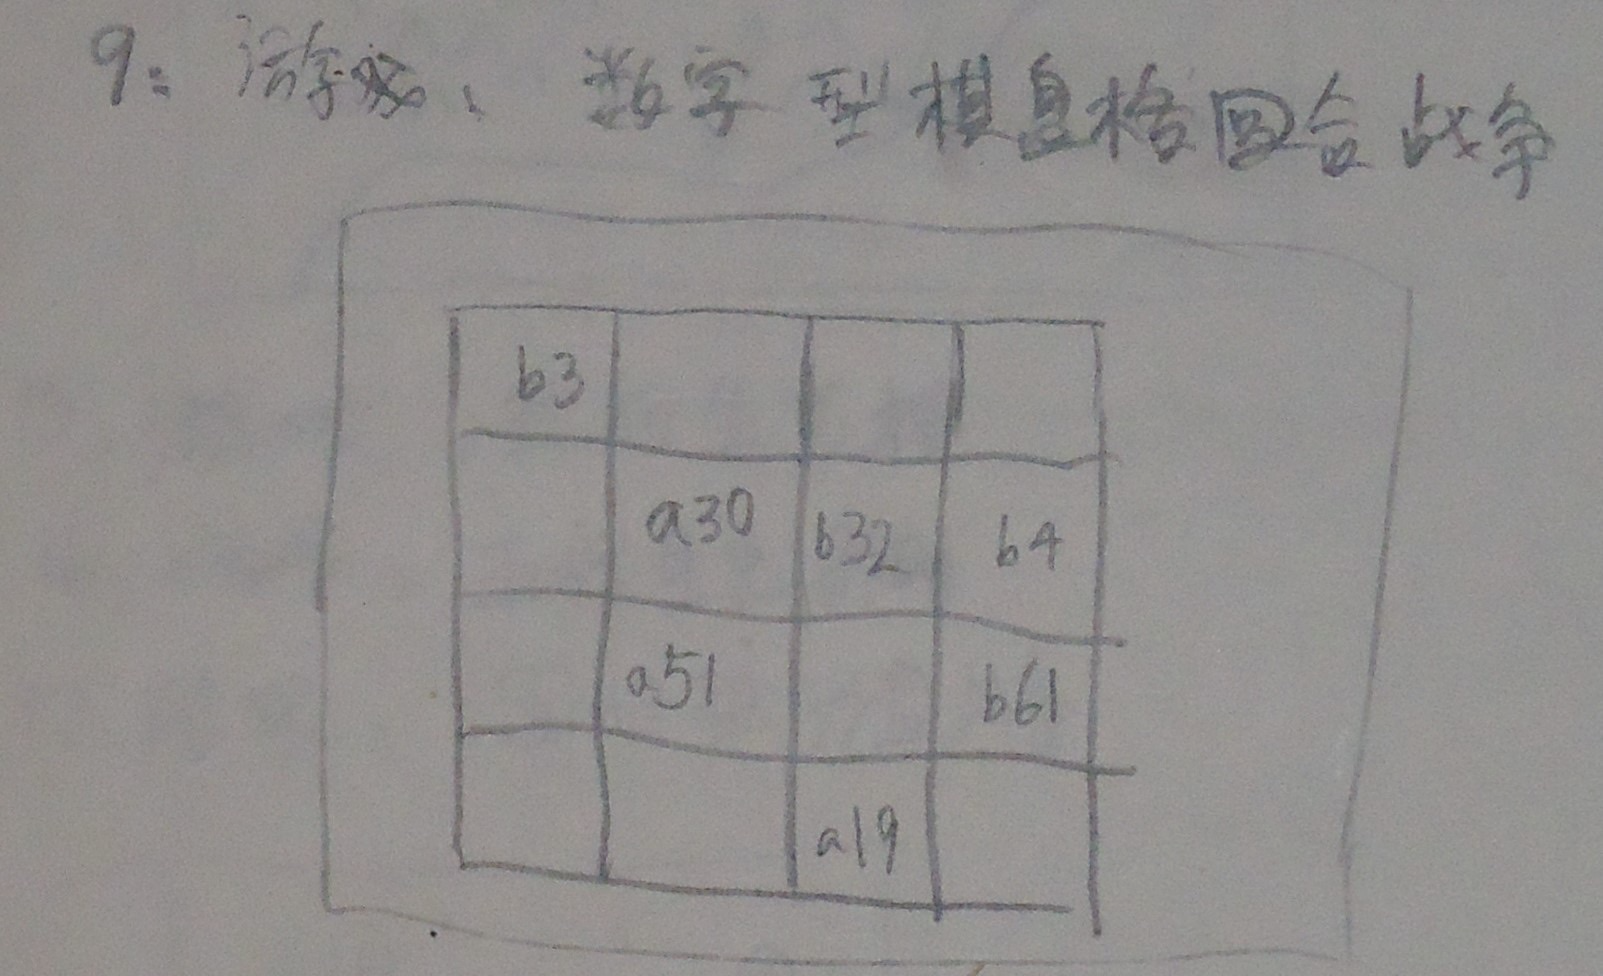 9: 游戏、数字型棋盘格回合战争
b3
a30 b32 b4
a51 b61
a19